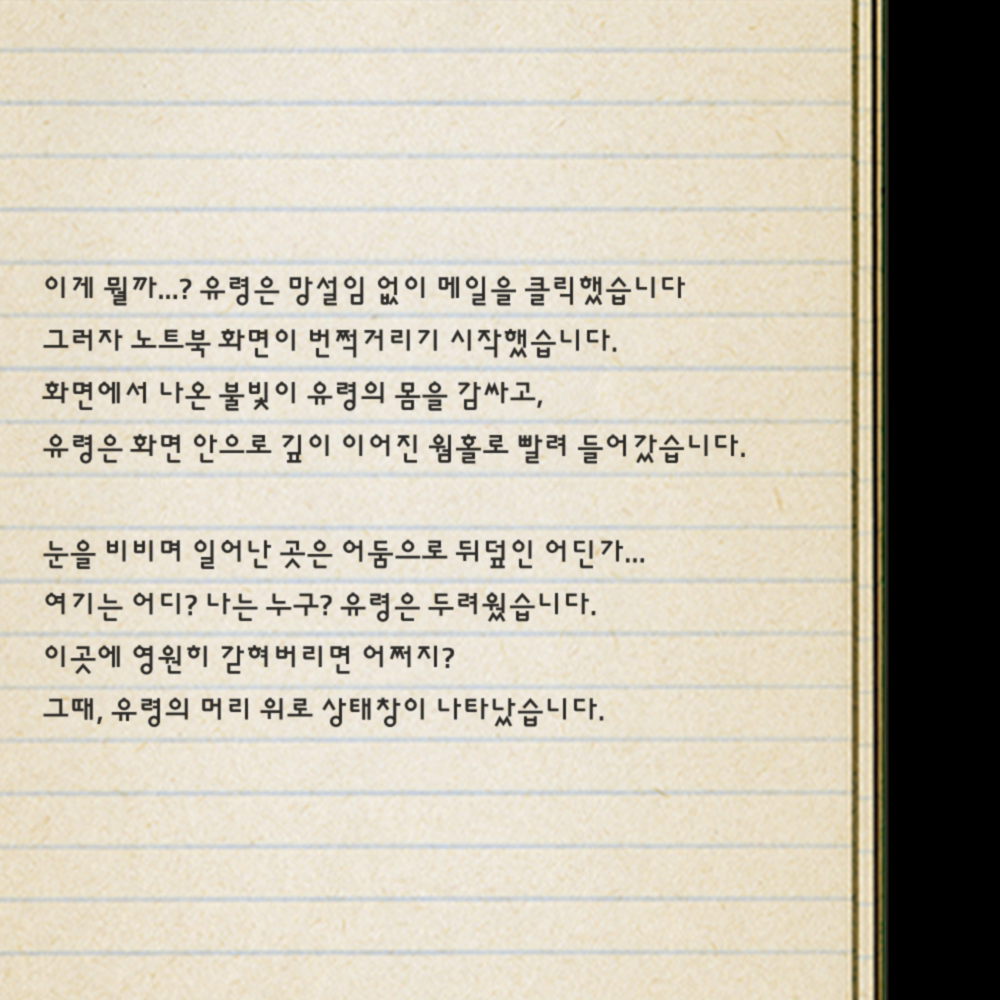 이게 뭘까...? 유령은 망설임 없이 메일을 클릭했습니다
그러자 노트북 화면이 번쩍거리기 시작했습니다.
화면에서 나온 불빛이 유령의 몸을 감싸고,
유령은 화면 안으로 깊이 이어진 웜홀로 빨려 들어갔습니다.
눈을 비비며 일어난 곳은 어둠으로 뒤덮인 어딘가...
여기는 어디? 나는 누구? 유령은 두려웠습니다.
이곳에 영원히 갇혀버리면 어쩌지?
그때, 유령의 머리 위로 상태창이 나타났습니다.